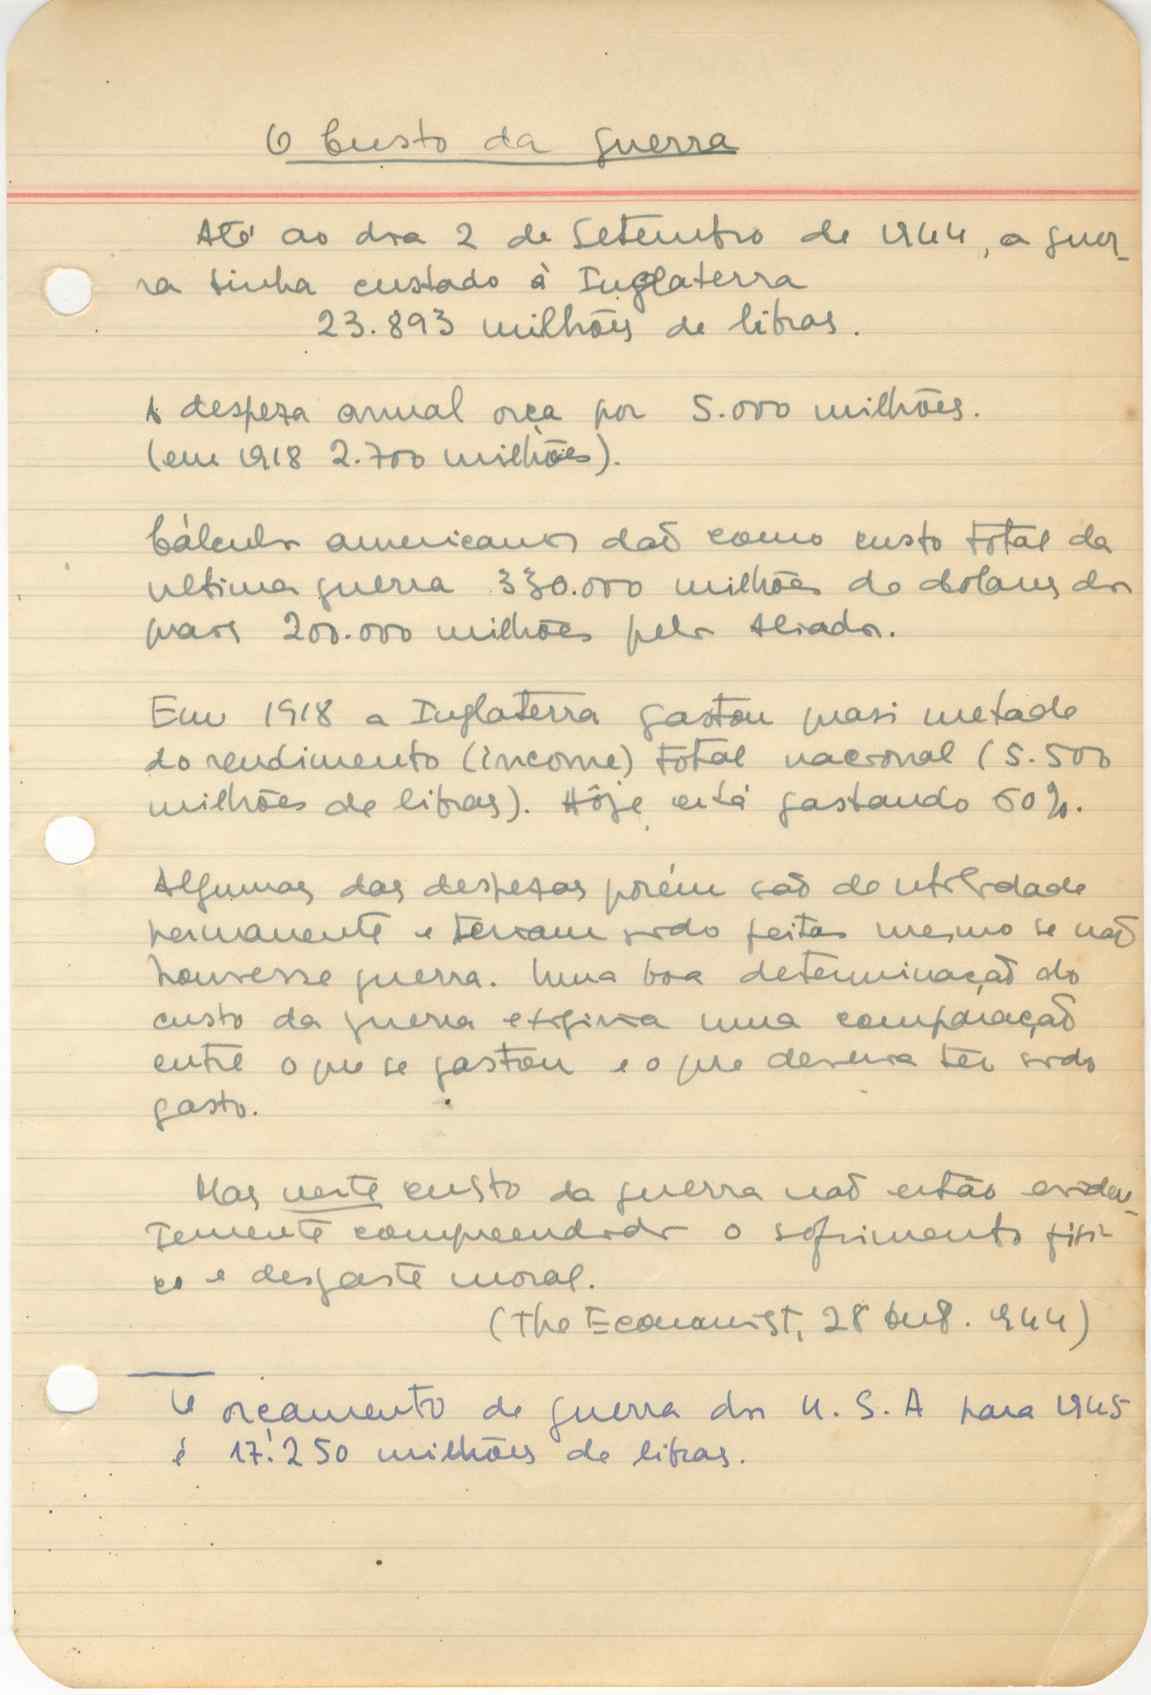 O Custo da guerra
Até ao dia 2 de Setembro de 1944, a guer-
ra tinha custado à Inglaterra
23.893 milhões de libras.
A despeza anual orça por 5.000 milhões.
(em 1918 2.700 milhões).
Cálculos americanos daõ como custo total da
ultima guerra 330.000 milhões de dolars dos
quais 200.000 milhões pelos Aliados.
Em 1918 a Inglaterra gastou quasi metade
do rendimento (income) total nacional (5.500
milhões de libras). Hôje está gastando 60%.
Algumas das despezas porém saõ de utilidade
permanente e teriam sido feitas mesmo se naõ
houvesse guerra. Uma boa determinaçaõ do
custo da guerra exigiria uma comparaçaõ
entre o que se gastou e o que deveria ter sido
gasto.
Mas neste custo da guerra naõ estão eviden-
temente compreendidos o sofrimento físi-
co e desgaste moral.
(The Economist, 28 Out. 944)
O orçamento de guerra dos U.S.A para 1945
é 17.250 milhões de libras.